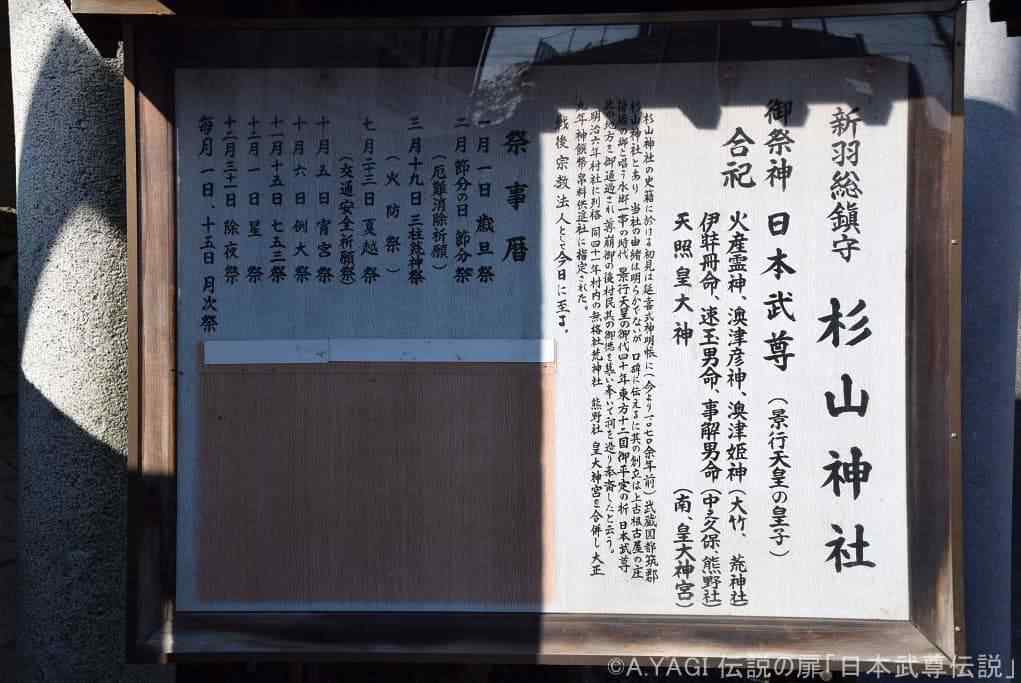 新羽総鎮守 杉山神社
御祭神 日本武尊(景行天皇の皇子)
合祀
火産霊神、澳津彦神、澳津姫神(大竹、荒神社)
伊弉冊命、速玉男命、事解男命(中之久保、熊野社)
天照皇大神(南、皇大神宮)
杉山神社の史籍に於ける初見は延喜式神明帳に(今より一〇七〇余年前)武蔵国都筑郡
杉山神社とあり 当社の由緒は明らかでないが 口碑に伝えるに其の創立は上古根古屋の庄
の郷と唱う 一事の時代 景行天皇の御代四十年東方十二国御平定の折 日本武尊
此の地方を御通過され 尊崩御の後村民其の御徳を慕い奉いて祠を造り奉斎したと云う。
明治六年村社に列格 同四十一年村内の無格社荒神社 熊野社 皇大神宮を合併し 大正
九年神饌幣帛料供進社に指定された。
戦後宗教法人として今日に至る。
祭事暦
一月一日 歳旦祭
二月節分の日 節分祭
(厄難消除祈願)
三月十九日 三柱荒神祭
(火防祭)
七月二十三日 夏越祭
(交通安全祈願祭)
十月五日 宵宮祭
十月六日 例大祭
十一月十五日 七五三
十二月一日 星祭
十二月三十一日 除夜祭
毎月一日、十五日 月次祭
©A.YAGI 伝説の扉「日本武尊伝説」